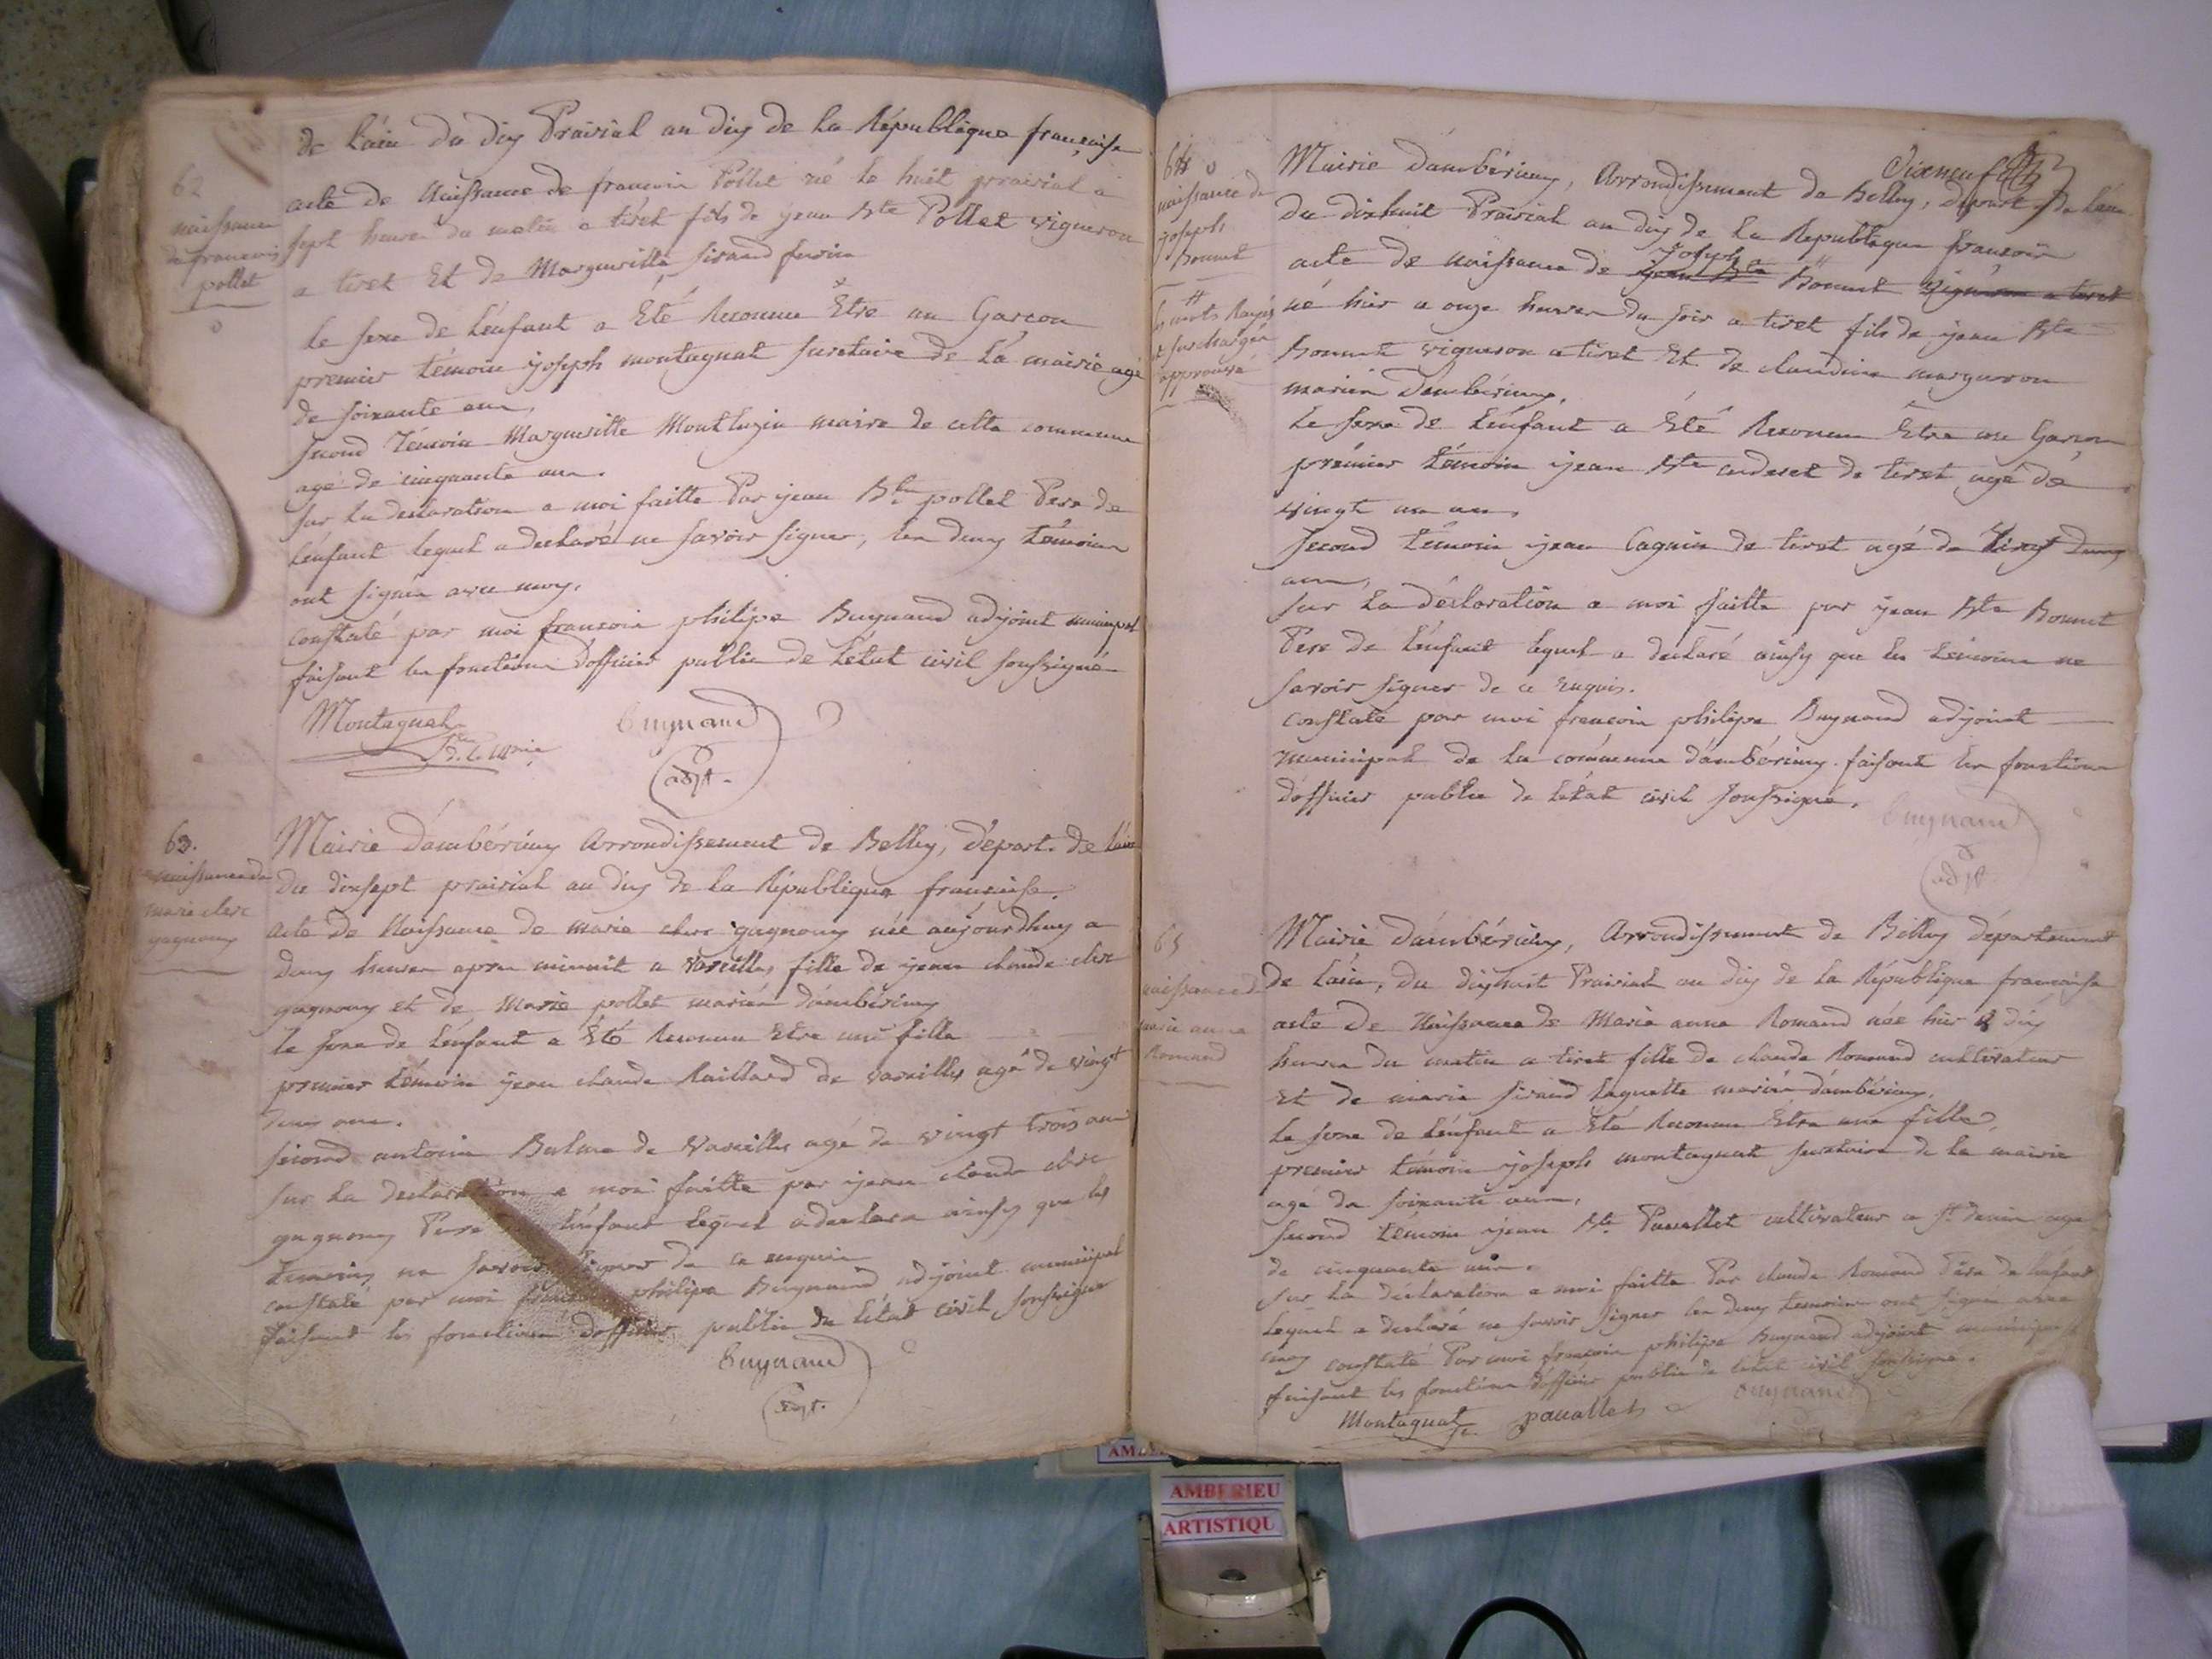 de L'ain du dix Prairial an dix de la République française
62
naissance
de francois
pollet
acte de Naissance de francois Pollet né le huit prairial a
sept heures du matin a tiret fils de jean Bte Pollet vigneron
a tiret Et de Margueritte Sirand
Le sexe de L'enfant a Eté Reconnu Etre un Garçon
premier témoin joseph montagnat secretaire de La mairie agé
de soixante ans,
second Témoin Margueritte Montluzin maire de cette commune
agé de cinquante ans.
sur La declaration a moi faitte Par jean Bte pollet Pere de
L'enfant lequel a declaré ne savoir signer, les deux témoins
ont signés avec moy.
constaté par moi francois philipe Buynand adjoint municipal
faisant les fonctions d'officier public de L'état civil soussigné
Montagnat
Buynand
adjt.
63.
naissance de
marie clerc
gagnoux
Mairie d'ambérieux Arrondissement de Belley, départ. de L'ain
du dixsept prairial an dix de la République française.
acte de Naissance de marie clerc gagnoux née aujourdhuy a
deux heures apres minuit a Vareilles, fille de jean claude clerc
gagnoux et de Marie pollet mariés d'ambérieux
Le sexe de L'enfant a Eté Reconnu Etre une fille
premier témoin jean claude Raillard de Vareilles agé de vingt
deux ans.
second antoine Bulme de Vareilles agé de vingt trois ans
sur La declaration a moi faitte par jean claude clerc
gagnoux Pere L'enfant Lequel a declare ainsy que les
temoins ne savoir signer de ce enquis
constaté par moi philipe Buynand adjoint municipal
faisant les fonctions d'officier public de L'état civil soussigné
Buynand
adjt.
64
naissance de
joseph
Bonnet
les mots Rayés
et surchargés
approuvé
Dixneuf
Mairie d'ambérieux, Arrondissement de Belley, départ. de L'ain
du dixhuit Prairial an dix de la Republique françoise
acte de naissance de jean Bte Joseph Bonnet vigneron a tiret
né hier a onze heures du soir a tiret fils de jean Bte
Bonnet vigneron a tiret Et de claudine
mariés d'ambérieux.
Le sexe de L'énfant a Eté Reconnu Etre un Garçon
prémier témoin jean Bte de tiret agé de
vingt un ans,
second témoin jean Cagnin de tiret agé de vingt deux
ans,
sur La déclaration a moi faitte par jean Bte Bonnet
Pére de L'énfant lequel a declaré ainsy que les témoins ne
savoir signer de ce Enquis.
constaté par moi françois philipe Buynand adjoint
municipal de la commune d'ambérieux faisant les fonctions
d'officier public de L'état civil soussigné.
Buynand
adjt.
65
naissance de
marie anne
Romand
Mairie d'ambérieux, Arrondissement de Belley département
de L'ain, du dixhuit Prairial an dix de la République française
acte de Naissance de Marie anne Romand née hier a dix
heures du matin a tiret fille de claude Romand cultivateur
Et de marie Sirand Laquelle mariés d'ambérieux,
Le sexe de L'énfant a Eté Reconnu Etre une fille,
premier témoin joseph montagnat secretaire de la mairie
agé de soixante ans,
second témoin jean Bte Pavallet cultivateur a St denis agé
de cinquante ans.
sur La déclaration a moi faitte Par claude Romand Pére de L'énfant
Lequel a declaré ne savoir signer les deux temoins ont signés avec
moy constaté Par moi françois philipe Buynand adjoint municipal
faisant les fonctions d'officier public de L'état civil soussigné.
Montagnat pavallet Buynand
AMBERIEU
ARTISTIQU